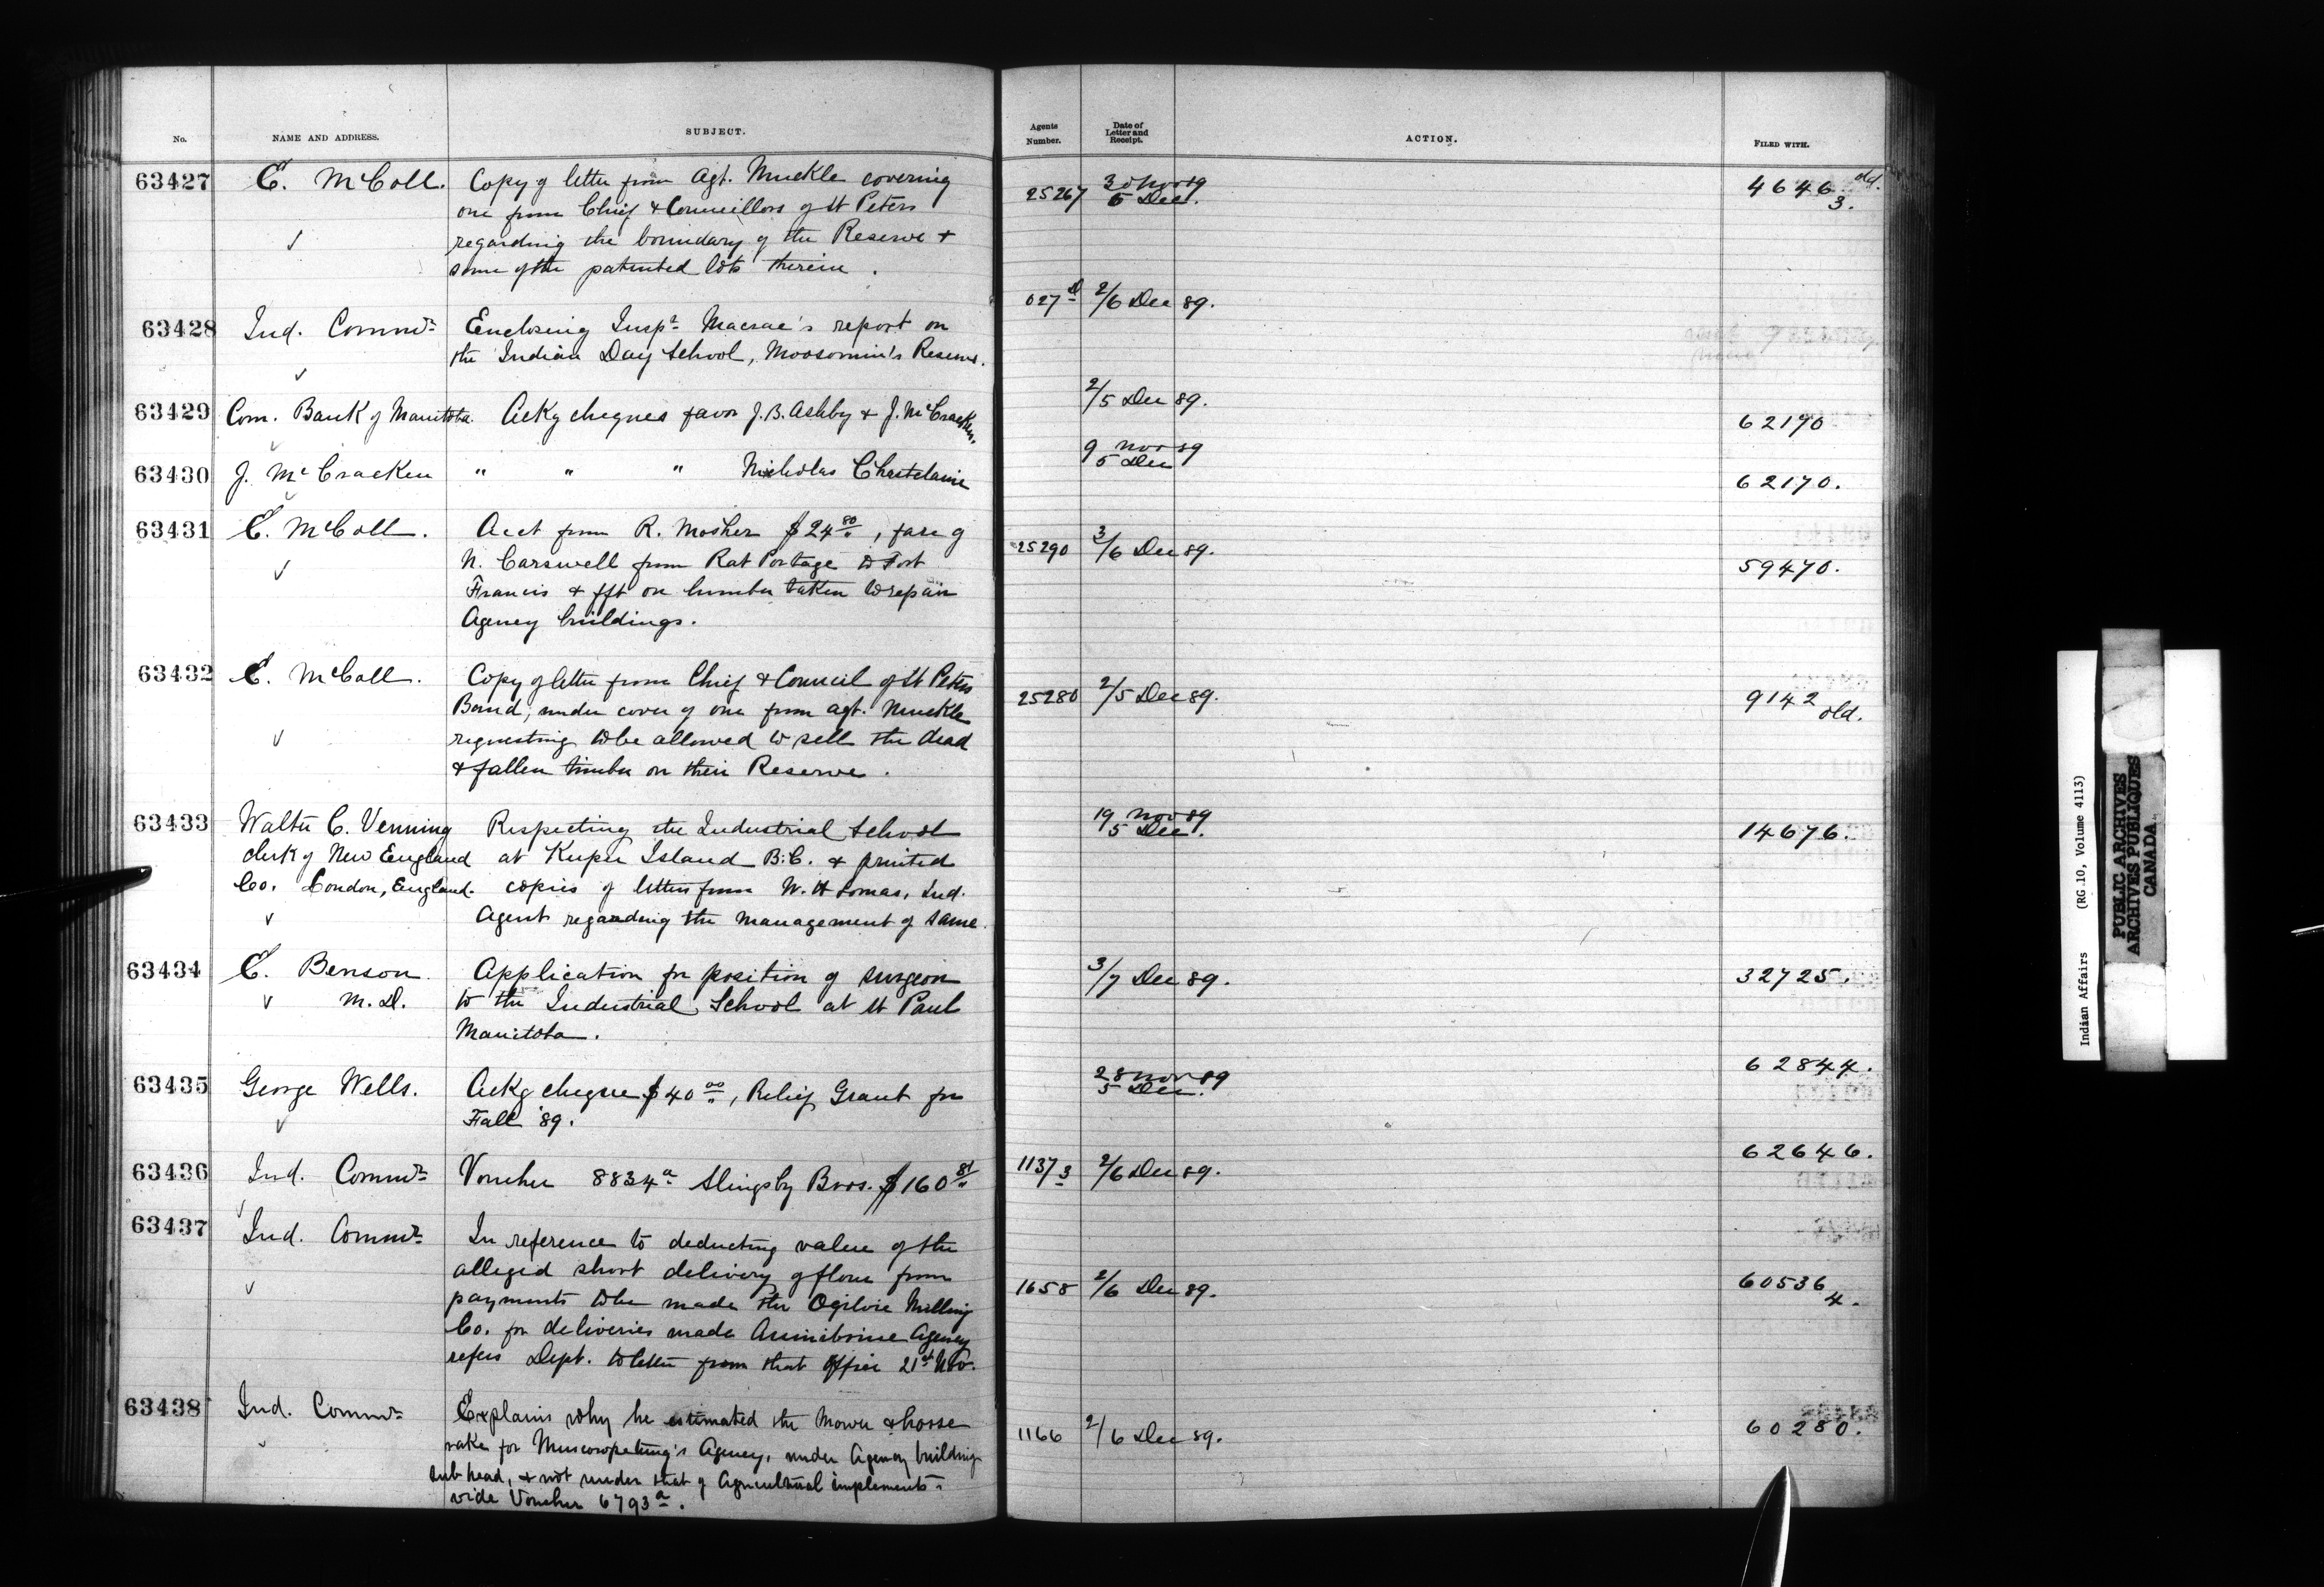 No. NAME AND ADDRESS. SUBJECT. Agents Number. Date of Letter and Receipt. ACTION. FILED WITH.
63427 E. McColl. Copy of letter from Agt. Muckle covering
one from Chief & Councillors of St Peters
regarding the boundary of the Reserve &
some of the patented lots therein.
25267 30 Nov 89
5 Dec.
4646 old.
3.
63428 Ind. Commr Enclosing Inspr Macrae's report on
the Indian Day School, Moosomin's Reserve.
027 D 2/6 Dec 89.
63429 Com. Bank of Manitoba. Ackg cheques favor J.B. Ashby & J. McCracken.
2/5 Dec 89.
62190
63430 J. McCracken " " " Nicholas Chastelaine
9 Nov 89
5 Dec
62170.
63431 E. McColl. Acct from R. Mosher $24 80, fare of
N. Carswell from Rat Portage to Fort
Francis & fft on lumber taken to repair
Agency buildings.
25290 3/6 Dec 89.
59470.
63432 E. McColl. Copy of letter from Chief & Council of St Peters
Band, under cover of one from Agt. Muckle
requesting to be allowed to sell the dead
& fallen timber on their Reserve.
25280 2/5 Dec 89.
9142
old.
63433 Walter C. Venning Respecting the Industrial School
clerk of New England at Kuper Island B.C. & printed
Co. London, England. copies of letters from W. H Lomas, Ind.
Agent regarding the management of same.
19 Nov 89
5 Dec.
14676.
63434 E. Benson Application for position of surgeon
M.D. to the Industrial School at St Paul
Manitoba.
3/7 Dec 89.
32725.
63435 George Wells. Ackg cheque $40 00, Relief Grant for
Fall '89.
28 Nov 89
5 Dec.
62844.
63436 Ind. Commr Voucher 8834a Slingsby Bros. $160 81
1137 3 2/6 Dec 89.
62646.
63437 Ind. Commr In reference to deducting value of the
alleged short delivery of flour from
payments to be made the Ogilvie Milling
Co. for deliveries made Assiniboine Agency
refers Dept. to letter from that Office 21st Nov.
1658 2/6 Dec 89.
60536
4.
63438 Ind. Commr Explains why he estimated the mower & horse
rake for Muscowpetung's Agency, under Agency building
sub head, & not under that of Agricultural implements -
vide Voucher 6793a.
1166 2/6 Dec 89.
60280.
Indian Affairs (RG 10, Volume 4113)
PUBLIC ARCHIVES
ARCHIVES PUBLIQUES
CANADA